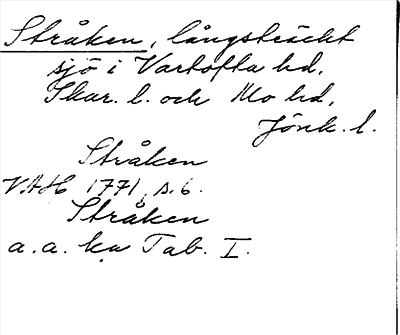 Stråken, långsträckt
sjö i Vartofta hd,
Skar. l. och Mo hd,
Jönk. l.
Stråken
VAH 1771, s. 6.
Stråken
a. a. ka Tab. I.